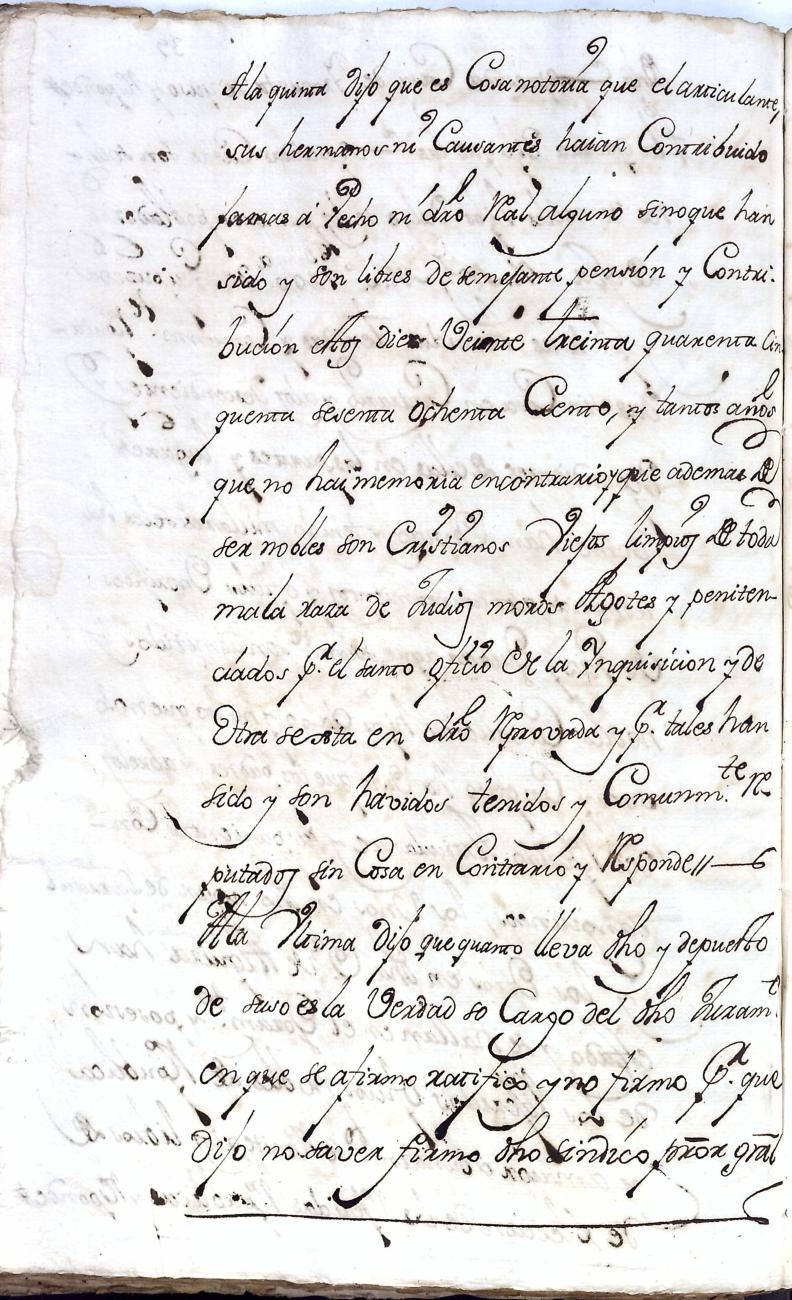 A la quinta dijo que es Cosa notoria que el articulante,
sus hermanos ni Causantes haian Contribuido
jamas á Pecho ni dro Real alguno sino que han
sido y son libres de semejante pensión y Contri-
bución estos diez Veinte treinta quarenta cin
quenta sesenta ochenta Ciento, y tantos años
que no hai memoria en contrario, y que ademas de
ser nobles son Cristianos Viejos limpios de toda
mala raza de Judios moros Agotes y peniten-
ciados pr. el santo oficio de la Ynquisicion y de
Otra secta en dro Reprovada y pr. tales han
sido y son havidos tenidos y Comunmte. Re
putados sin Cosa en Contrario y Responde//
A la Vltima Dijo que quanto lleva dho y depuesto
de suso es la Verdad so Cargo del dho Juramto.
en que se afirmo ratifico y no firmo pr. que
Dijo no saver firmo dho sindico pror gral